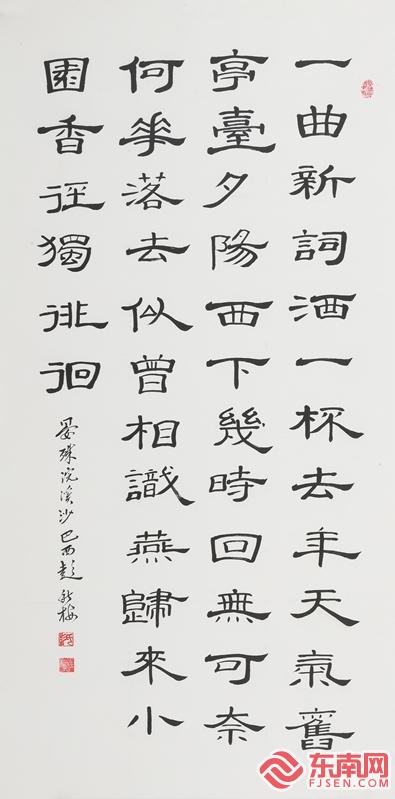 一曲新詞酒一杯去年天氣舊
亭臺夕陽西下幾時回無可奈
何華落去似曾相識燕歸來小
園香徑獨徘徊
晏殊浣溪沙巴西彭秋梅
东南网
FJSEN.COM